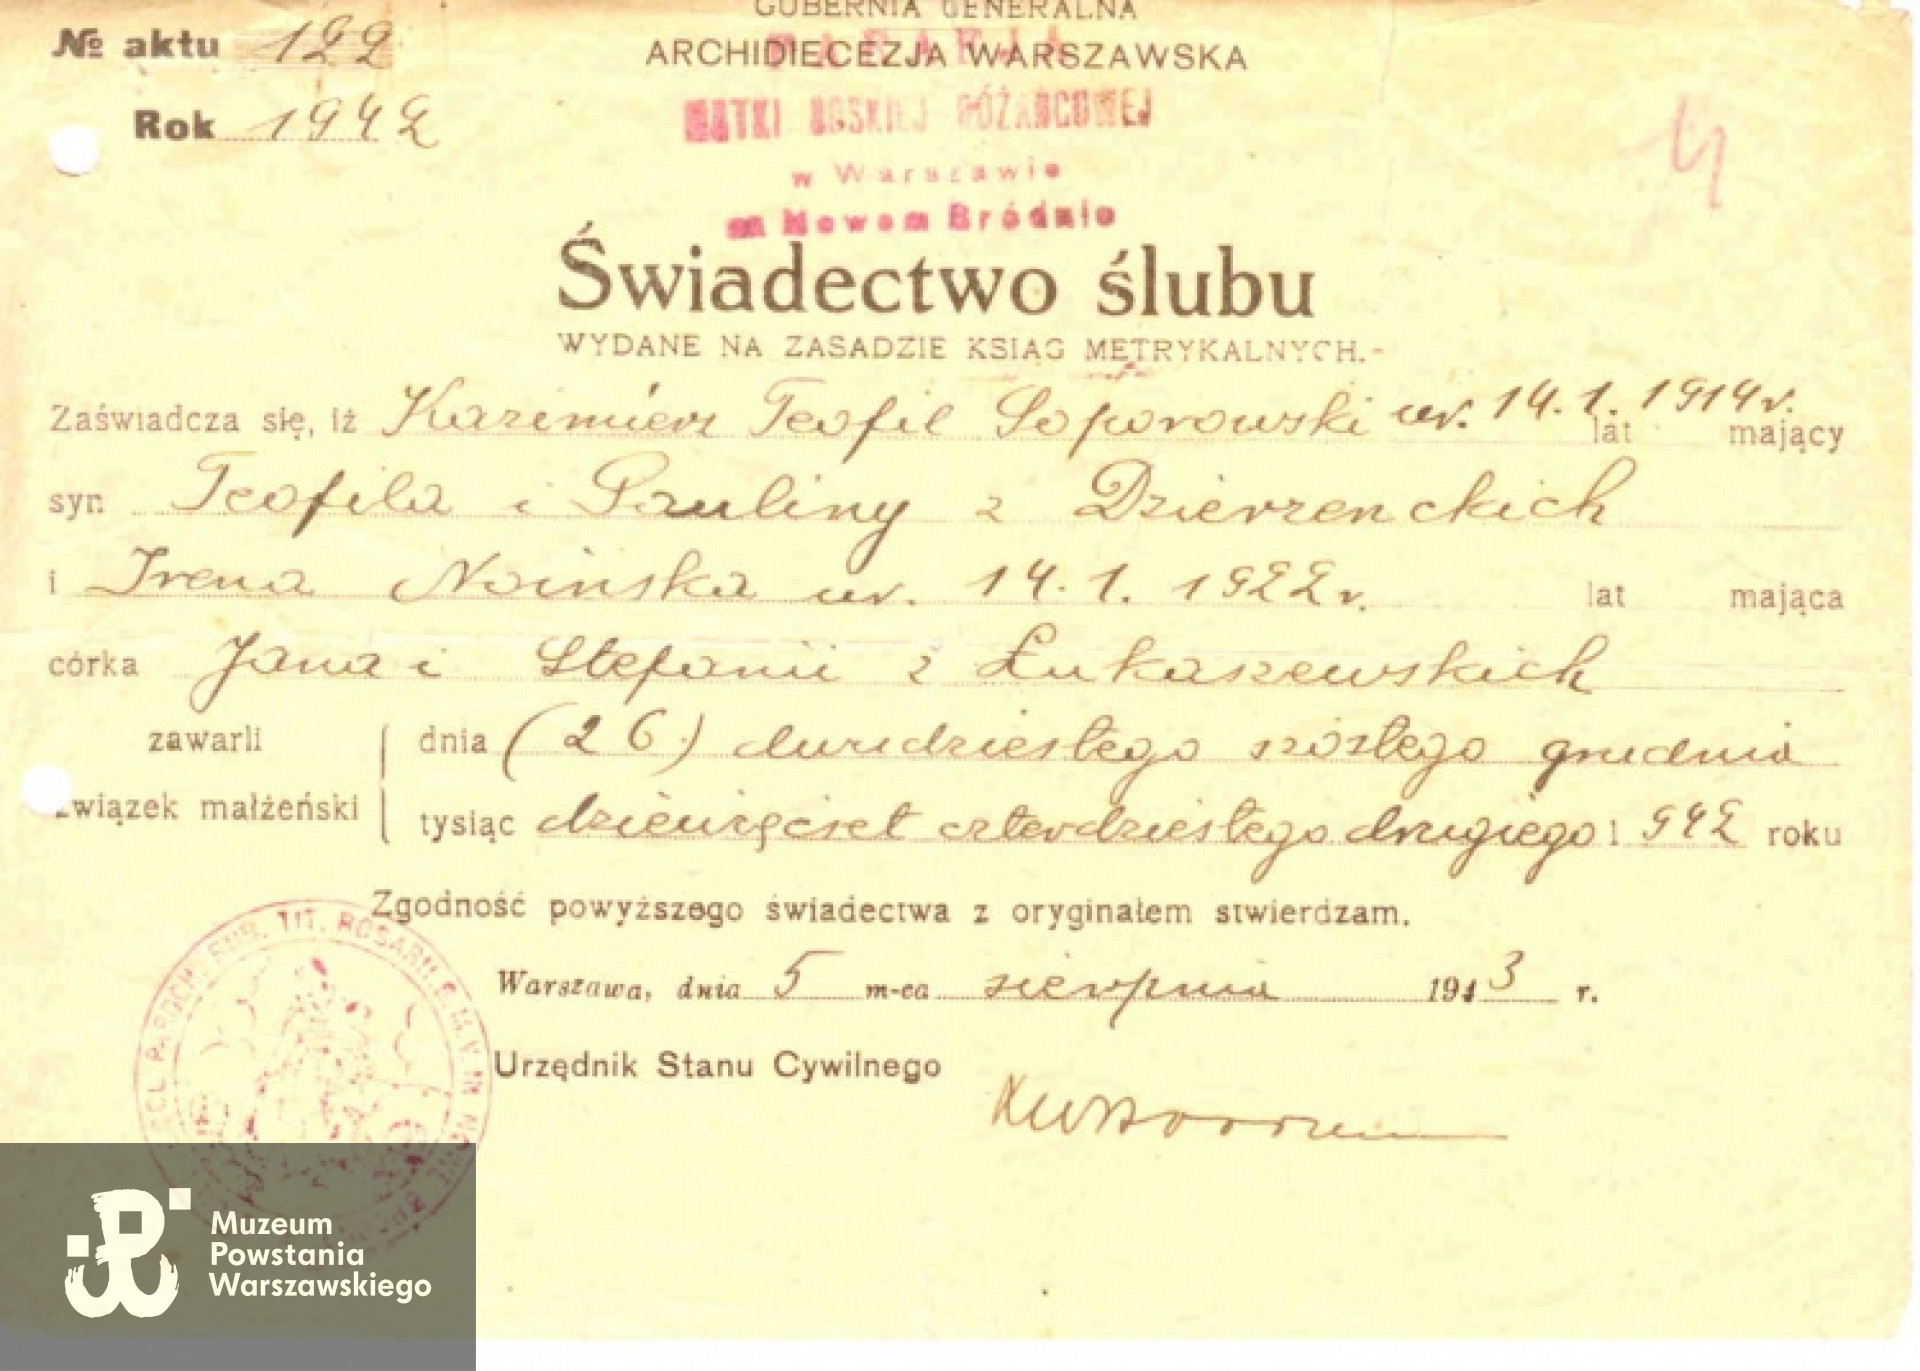 GUBERNIA GENERALNA
№ aktu 122
ARCHIDIECEZJA WARSZAWSKA
PARAFJA
Rok 1942
MATKI BOSKIEJ RÓŻAŃCOWEJ
w Warszawie
na Nowem Bródnie
Świadectwo ślubu
WYDANE NA ZASADZIE KSIĄG METRYKALNYCH.-
Zaświadcza się, iż Kazimierz Teofil Soporowski ur. 14.1.1914 r. lat mający
syn Teofila i Pauliny z Dzierzenckich
i Irena Noińska ur. 14.1.1922 r. lat mająca
córka Jana i Stefanii z Łukaszewskich
zawarli dnia (26) dwudziestego szóstego grudnia
związek małżeński tysiąc dziewięćset czterdziestego drugiego 1942 roku
Zgodność powyższego świadectwa z oryginałem stwierdzam.
Warszawa, dnia 5 m-ca sierpnia 1943 r.
Urzędnik Stanu Cywilnego
SUB. TIT. ROSARII
Muzeum
Powstania
Warszawskiego